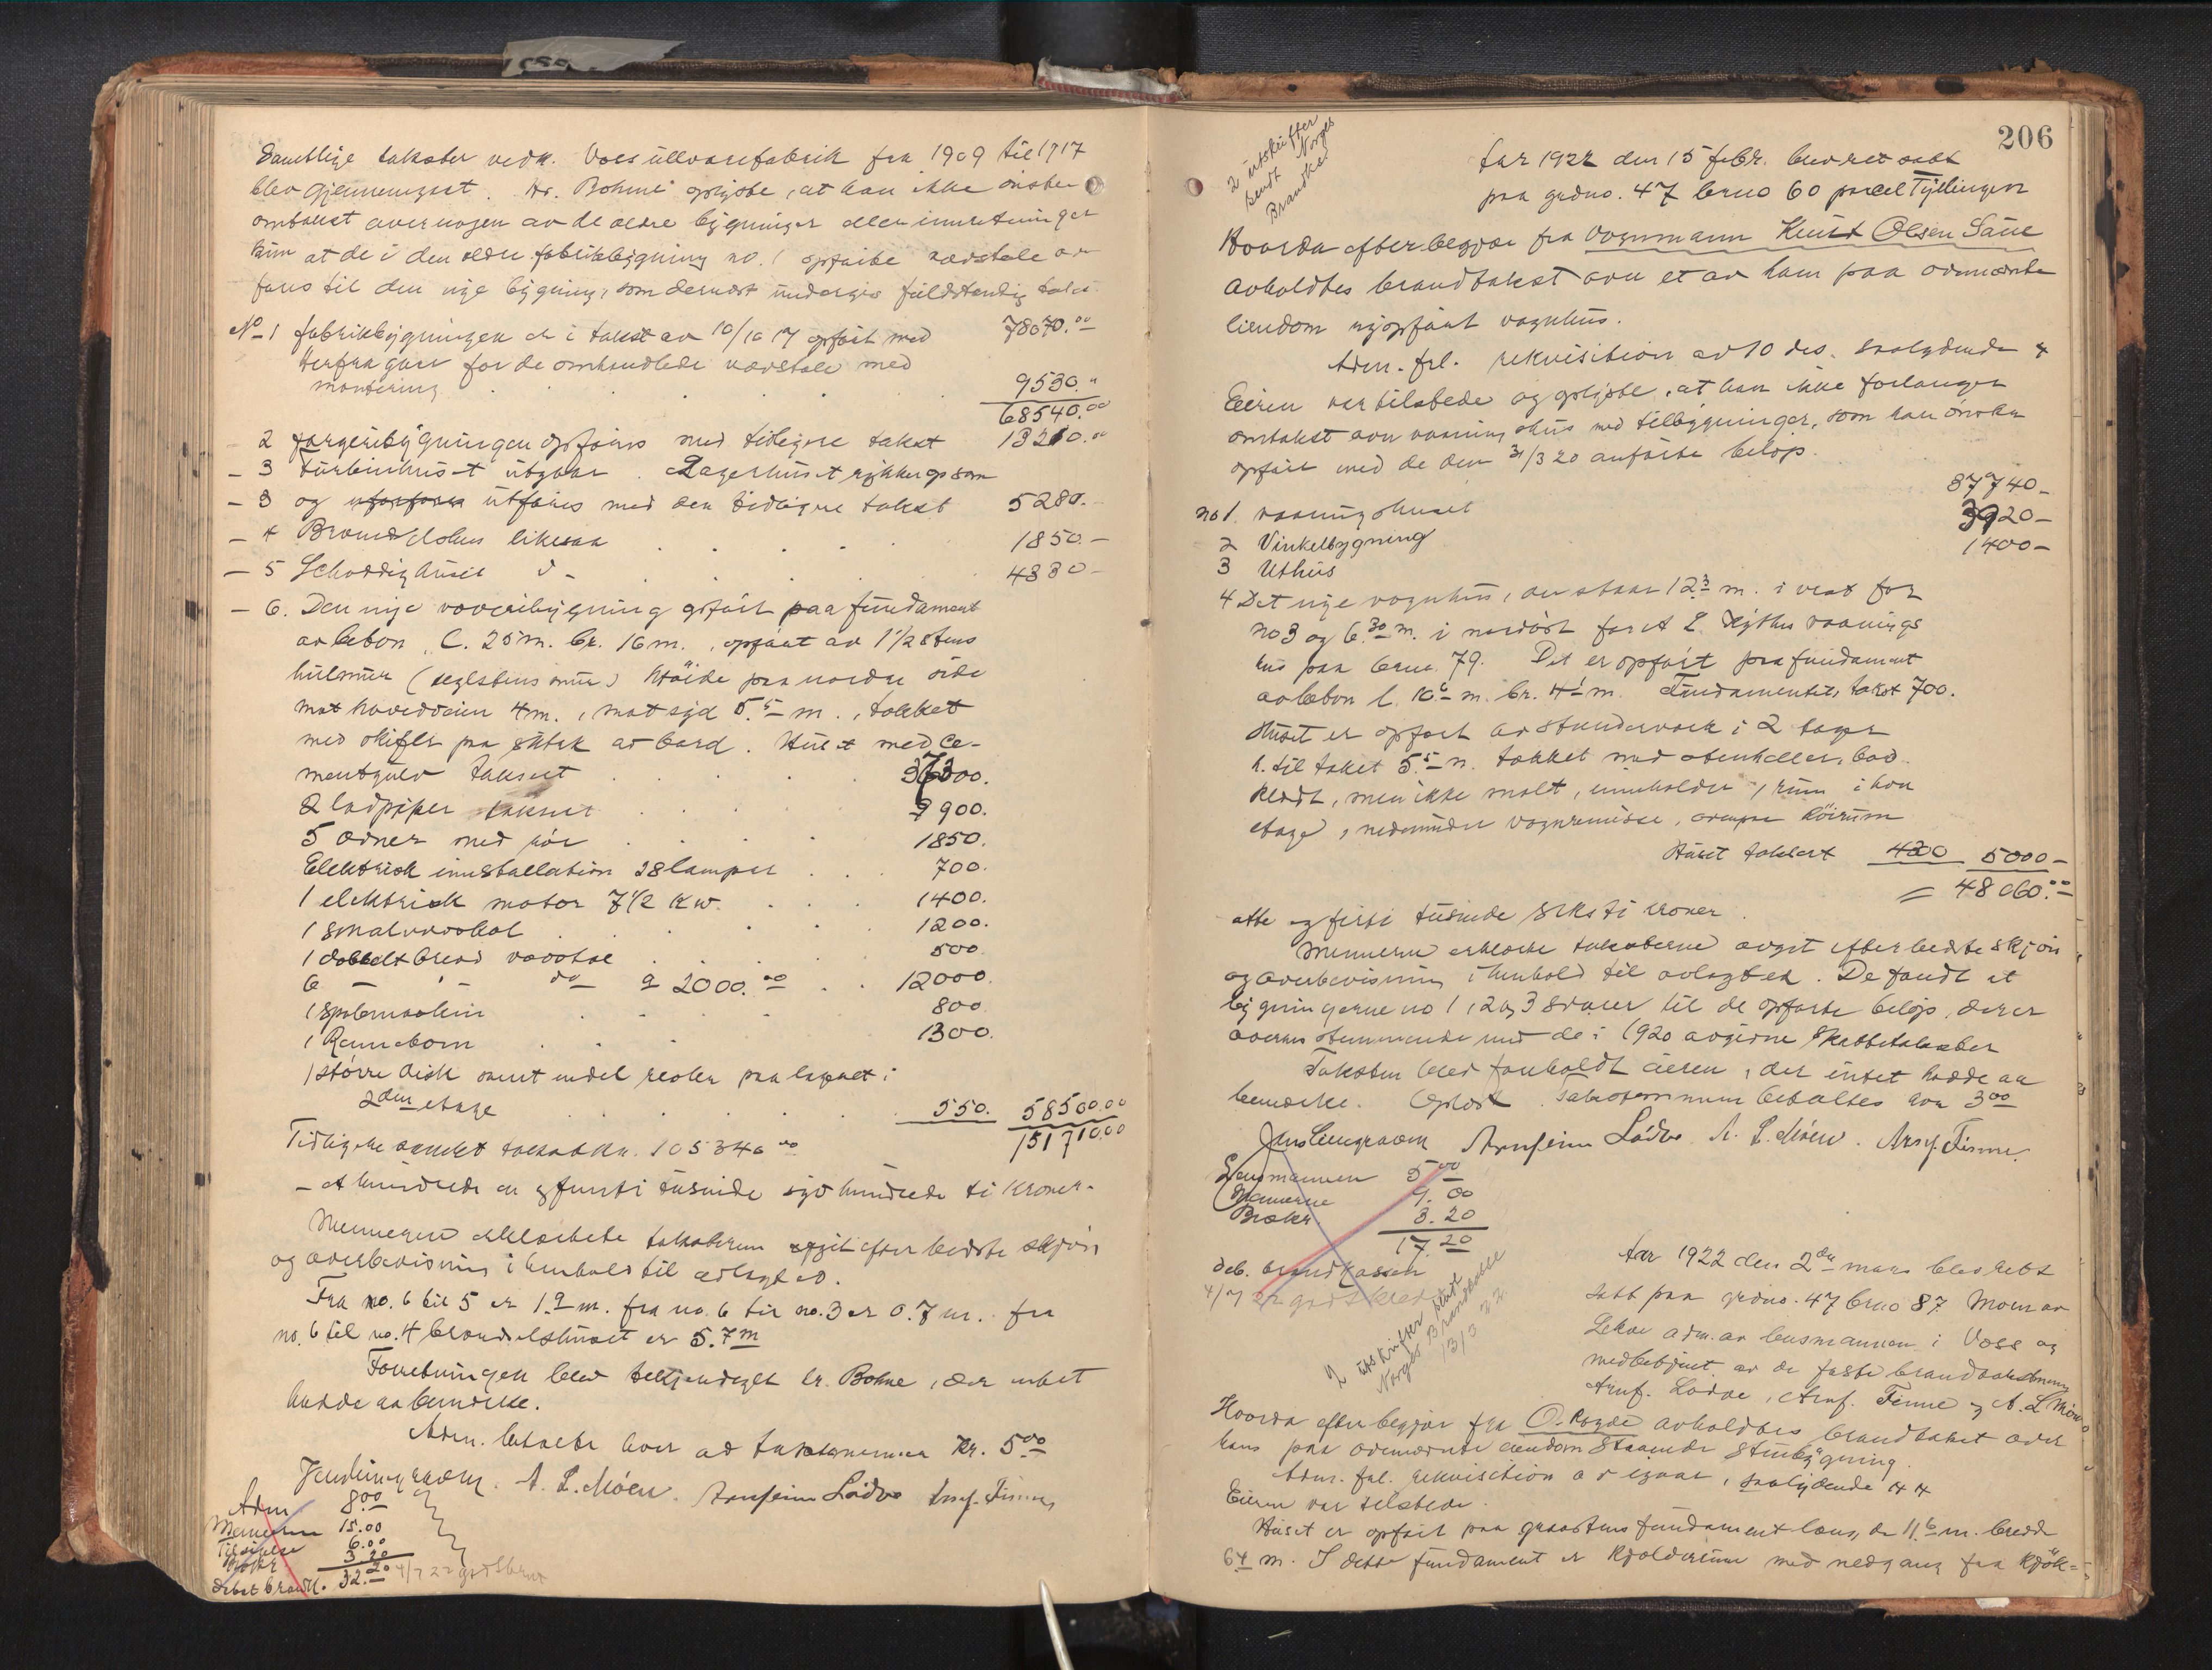 samtlige takster vedk. Voss uldvarefabrik fra 1909 til 1917
blev gjennemgaat. Hr. Bohme oplyste, at han ikke ønsker
omtakst over nogen av de ældre bygninger eller innretninger
kun at de i den ældre fabrikbygning no. 1 opførte vævstole over
føres til den nye bygning, som dernæst undergis fuldstendig takst.
No 1 fabrikbygningen er i takst av 10/10 17 opført med 78070.00
Herfra gaar for de omhandlede vævstole med
montering 9530."
68540.00
2 fargeribygningen opføres med tidligere takst 13210.00
- 3 turbinhuset utgaar. Lagerhuset rykker op som
- 3 og utføres med den tidligere takst 5280.-
- 4 Brændselshus likesaa 1850.-
- 5 Schoddyhuset do 4330-
- 6. Den nye væveribygning opført paa fundament
av beton, l. 25 m. br. 16 m., opført av 1 1/2 stens
hulmur (teglstens mur) Høide paa nordre side
mot hovedveien 4 m., mot syd 5.5 m., tækket
med skifer paa sutak av bord. Huset med ce-
mentgulv taksert 37300.
2 ladpiper taksert 900.
5 ovner med rør 1850.
Elektrisk innstallation 28 lamper 700.
1 elektrisk motor 7 1/2 kw. 1400.
1 smal vævstol 1200.
1 dobbelt bred vævstol 500.
6 - " - do a 2000.00 12000.
1 spolemaskin 800
1 Rennebom 1300.
1 større disk samt endel reoler paa lageret i
2den etage 550. 58500.00
Tidligere samlet takst kr. 105340.00 151710.00
- et hundrede en og femti tusinde syv hundrede ti kroner-
Mennene erklærte taksterne avgit efter bedste skjøn
og overbevisning i henhold til avlagt ed.
Fra no. 6 til 5 er 1.9 m. fra no. 6 til no. 3 er 0.7 m. fra
no. 6 til no. 4 brændselshuset er 5.7 m
Forretningen blev bekjendtgjort hr. Bohme, der intet
hadde at bemerke.
Adm. betalte hver av takstmennene kr. 5.00
Jens Lemgraven. A. L. Møen. Arnfinn Lødve Arnf. Finne
Adm 8.00
Mennerne 15.00
6.00
3.20
Debet brandk. 32.20 4/7 22 godtskrevet
206
2 utskrifter
sendt Norges
Brandkas
Aar 1922 den 15 febr. blev ret satt
paa grdno. 47 brno 60 parcel Tyllingen
Hvorda efter begjær fra vognmann Knut Olsen Saue
avholdtes brandtakst over et av ham paa ovennævnte
eiendom nyopført vognhus.
Adm. frl. rekvisition av 10 ds. saalydende 4
Eieren var tilstede og oplyste, at han ikke forlanger
omtakst over vaaningshus med tilbygninger, som han ønsker
opført med de den 31/3 20 anførte beløp.
no 1. vaaningshuset 37740-
2 Vinkelbygning 3920-
3 Uthus 1400-
4 Det nye vognhus, der staar 12.3 m. i vest for
no 3 og 6.30 m. i nordøst for A. L. vaanings
hus paa brno. 79. Det er opført paa fundament
av beton l. 10.6 m. br. 4.1 m. Fundamentets takst 700.
Huset er opført av stenderverk i 2 etager
h. til taket 5.5 m. tækket med stenheller, bord
klædt, men ikke malt, inneholder 1 rum i hver
etage, nedenunder vognremisse, ovenpaa høirum
Huset taksert 4300 5000-
= 48060.00
otte og firti tusinde seksti kroner.
Mennerne erklærte taksterne avgit efter bedste skjøn
og overbevisning i henhold til avlagt ed. De fandt at
bygningerne no 1, 2 og 3 svarer til de opførte beløp, der er
overensstemmende med de i 1920 avgivne skattetakster
Taksten blev foreholdt eieren, der intet hadde at
bemerke. Oplæst. Takstmennene betaltes hver 3.00
Jens Lemgraven Arnfinn Lødve A. L. Møen. Arnf. Finne.
Lensmannen 5.00
Mennerne 9.00
Brøkr. 3.20
17.20
deb. brandkassen
4/7 22 godtskrevet
2 utskrifter sendt
Norges Brandkasse
13/3 22
Aar 1922 den 2den mars blev ret
satt paa grdno. 47 brno 87 Moen av
Lekve adm. av lensmannen i Voss og
medbetjent av de faste brandtakstmenn
Arnf. Lødve, Arnf. Finne og A. L. Møen
Hvorda efter begjær fra O. Rogde avholdtes brandtakst over
hans paa ovennævnte eiendom staaende stuebygning.
Adm. frl. rekvisition av igaar, saalydende 44
Eieren var tilstede.
Huset er opført paa graastens fundament længde 11.6 m. bredde
6.4 m. I dette fundament er kjelderrum med nedgang fra kjøk-